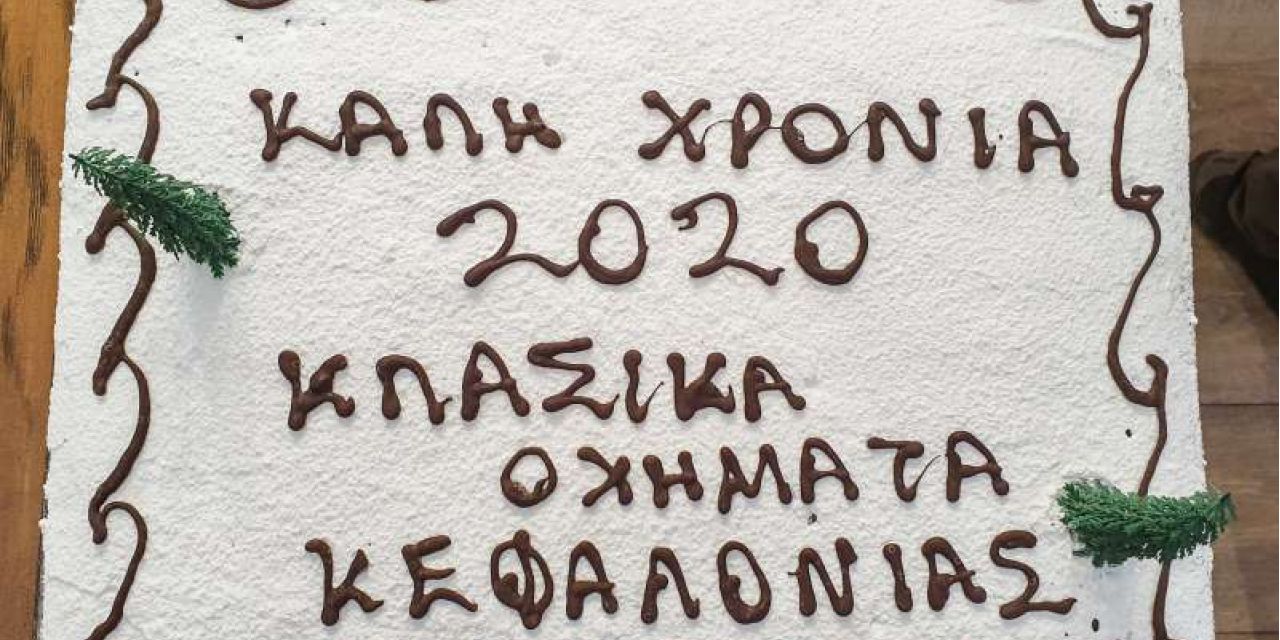 ΚΑΛΗ ΧΡΟΝΙΑ
2020
ΚΛΑΣΙΚΑ
ΟΧΗΜΑΤΑ
ΚΕΦΑΛΟΝΙΑΣ